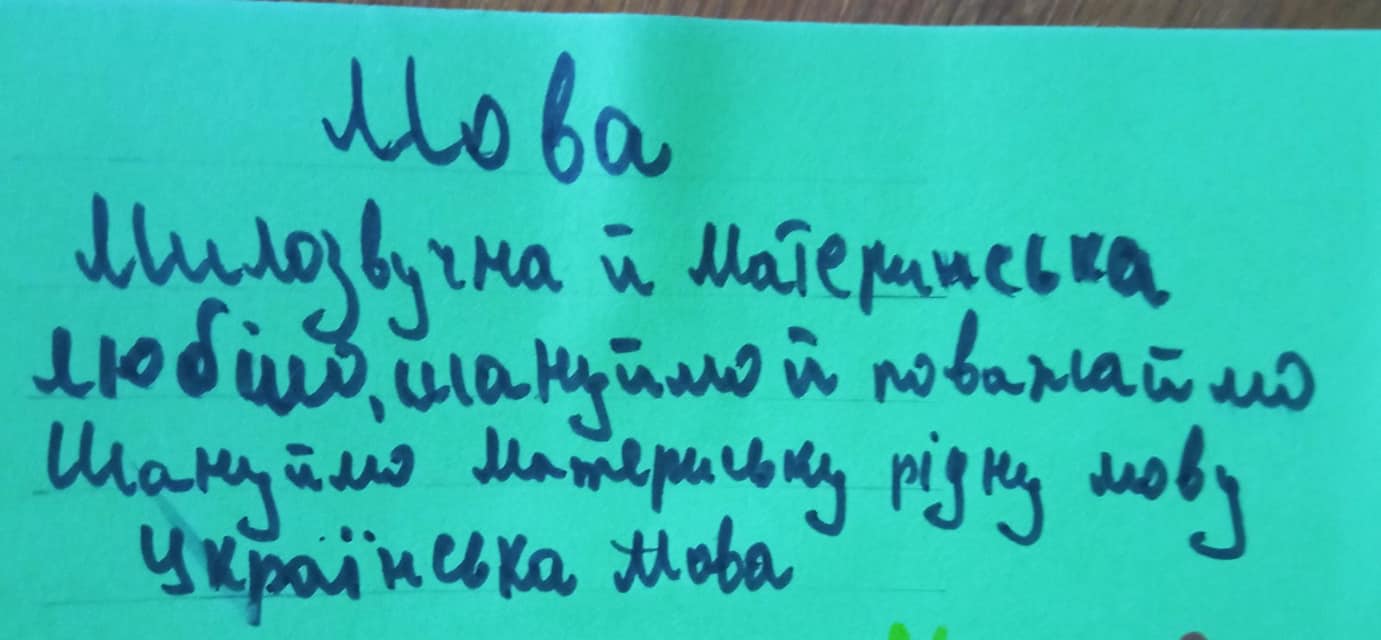 Мова
Милозвучна й материнська
любімо, шануймо й поважаймо
Шануймо материську рідну мову
Українська мова